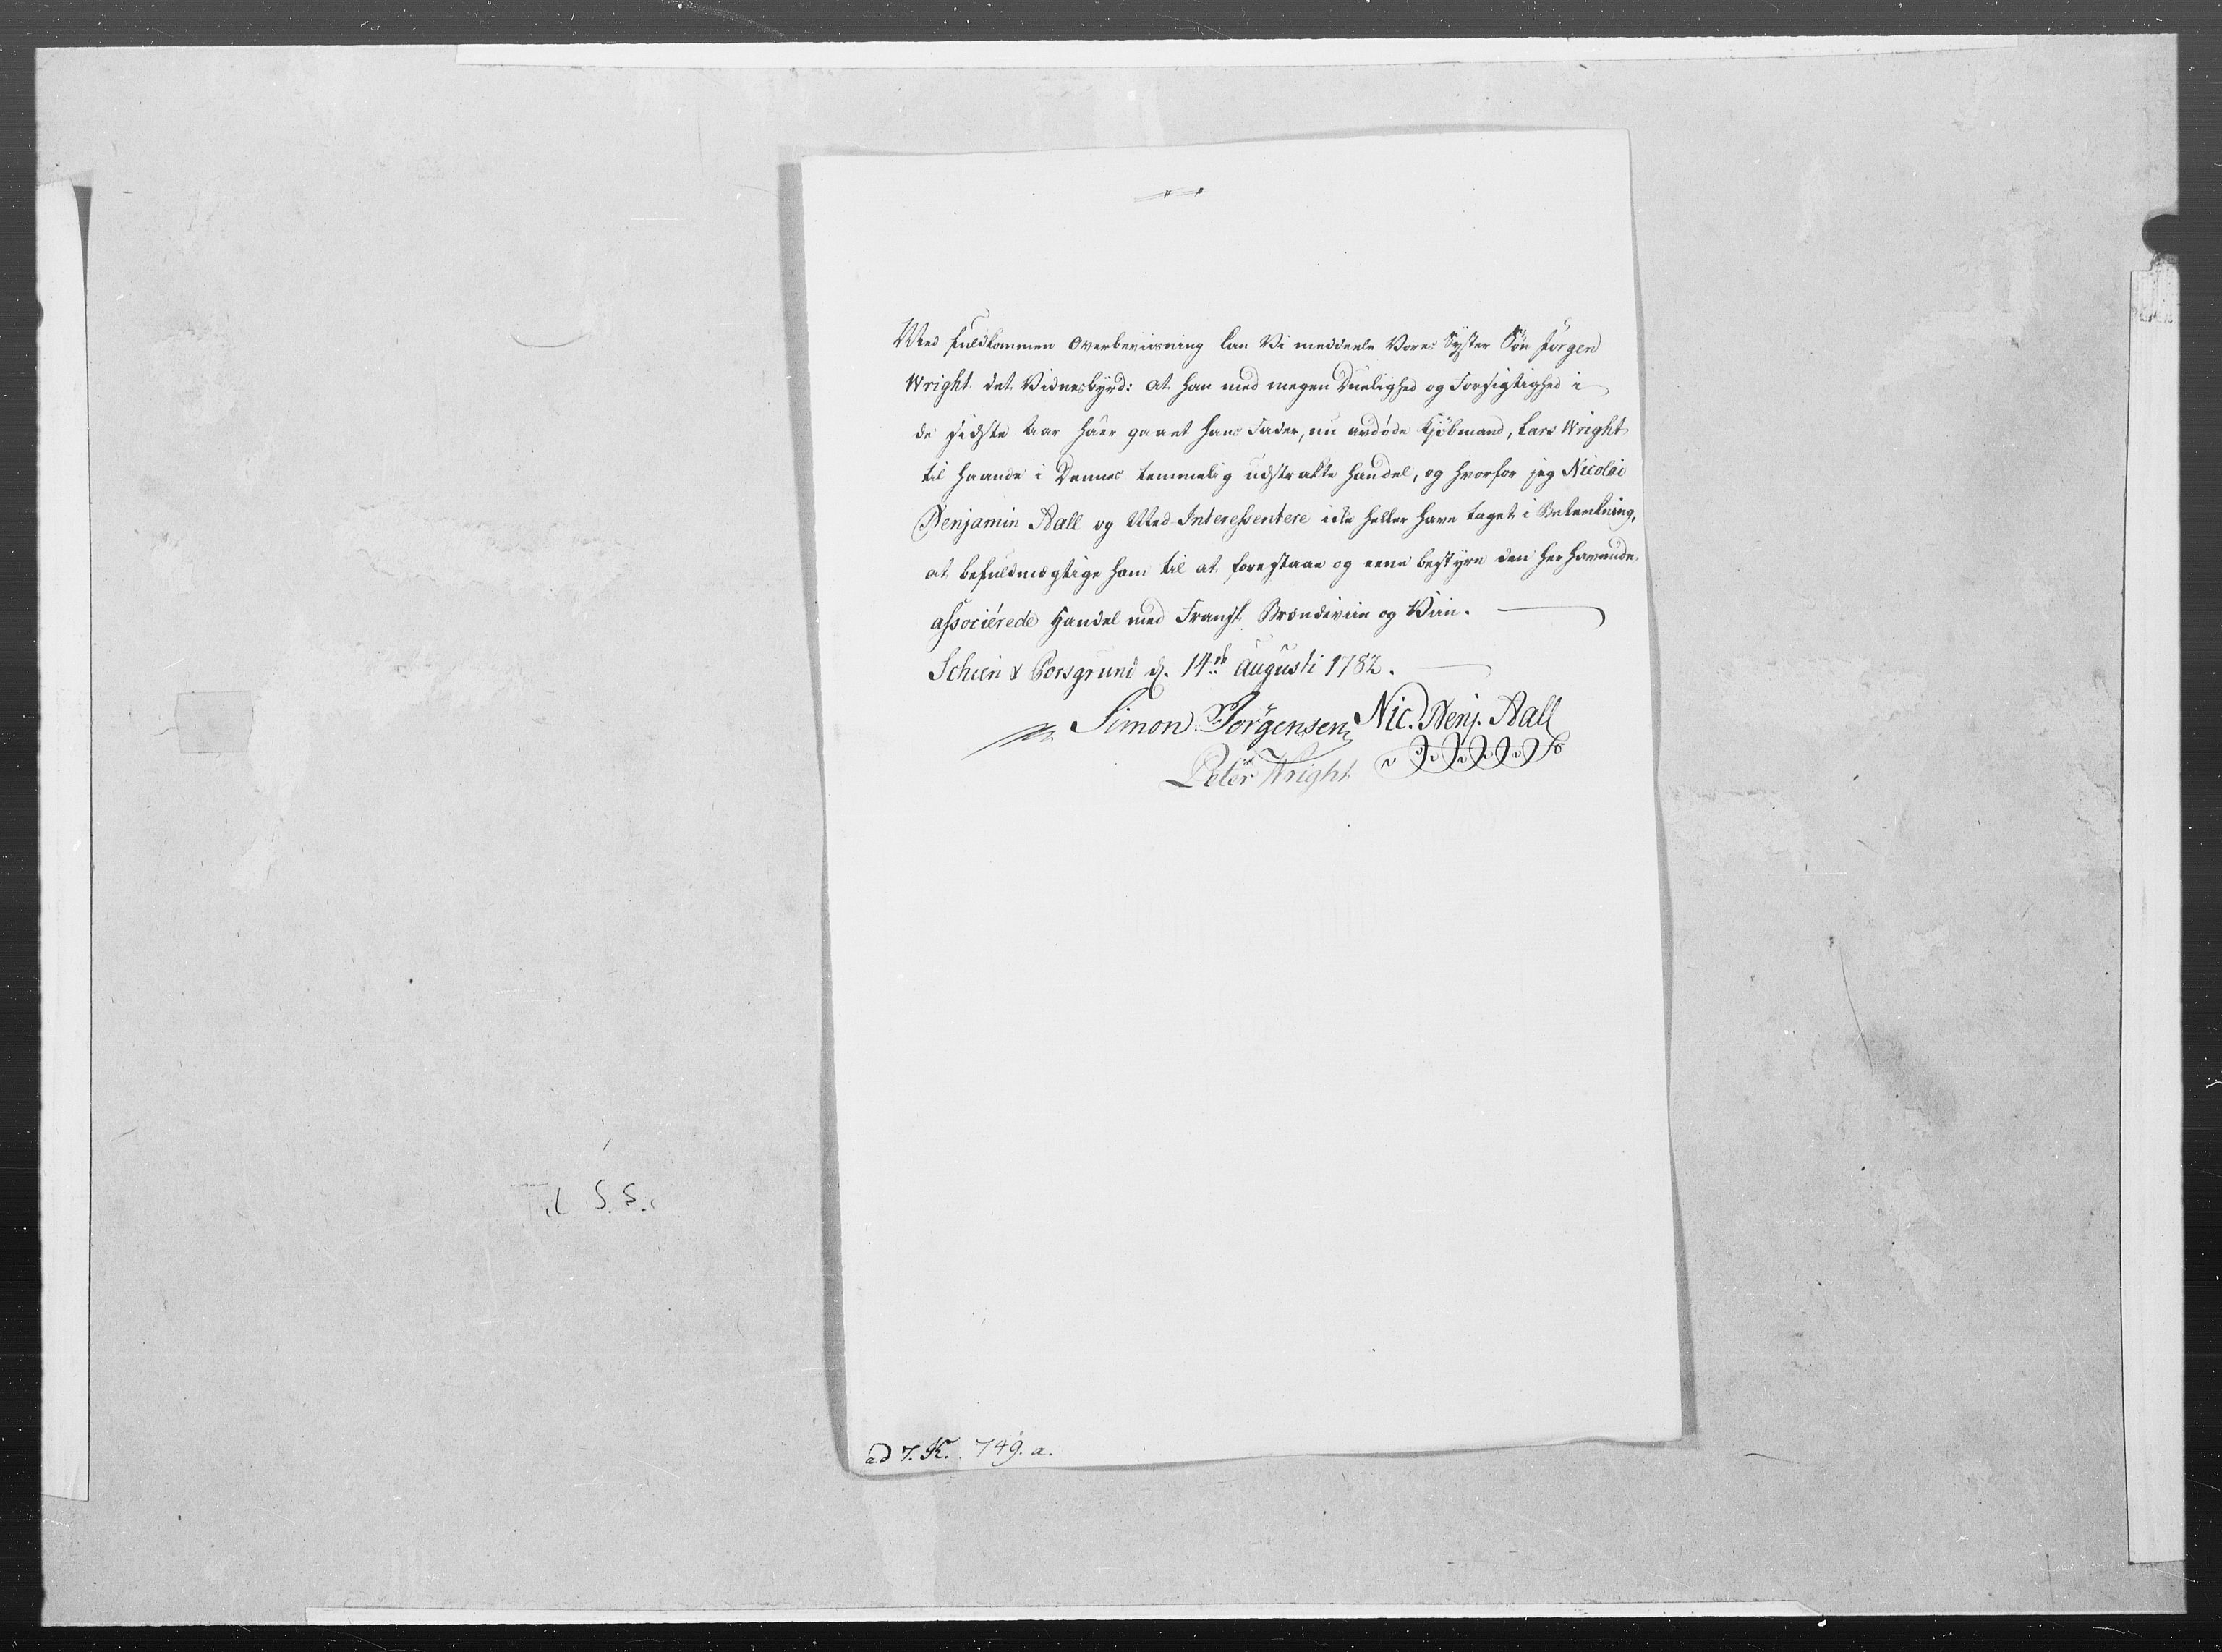 Med fuldkommen Overbeviisning kan Vi meddeele Vores Syster Søn Jørgen
Wright det Vidnesbyrd: at han med megen Duelighed og Forsigtighed i
de sidste Aar haver gaaet hans Fader, nu avdøde Kjøbmand, Lars Wright
til Haande i Dennes temmelig udstrakte Handel, og hvorfor jeg Nicolai
Benjamin Aall og Med-Interessentere icke heller have taget i Betenkning,
at befuldmægtige ham til at forestaae og eene bestyre den her havende
associérede Handel med Fransk Brændeviin og Viin.
Scheen & Porsgrund d. 14de Augusti 1782.
Simon Jørgensen Nic. Benj. Aall
Peter Wright
til S. S.
ad 7. K. 749. a.